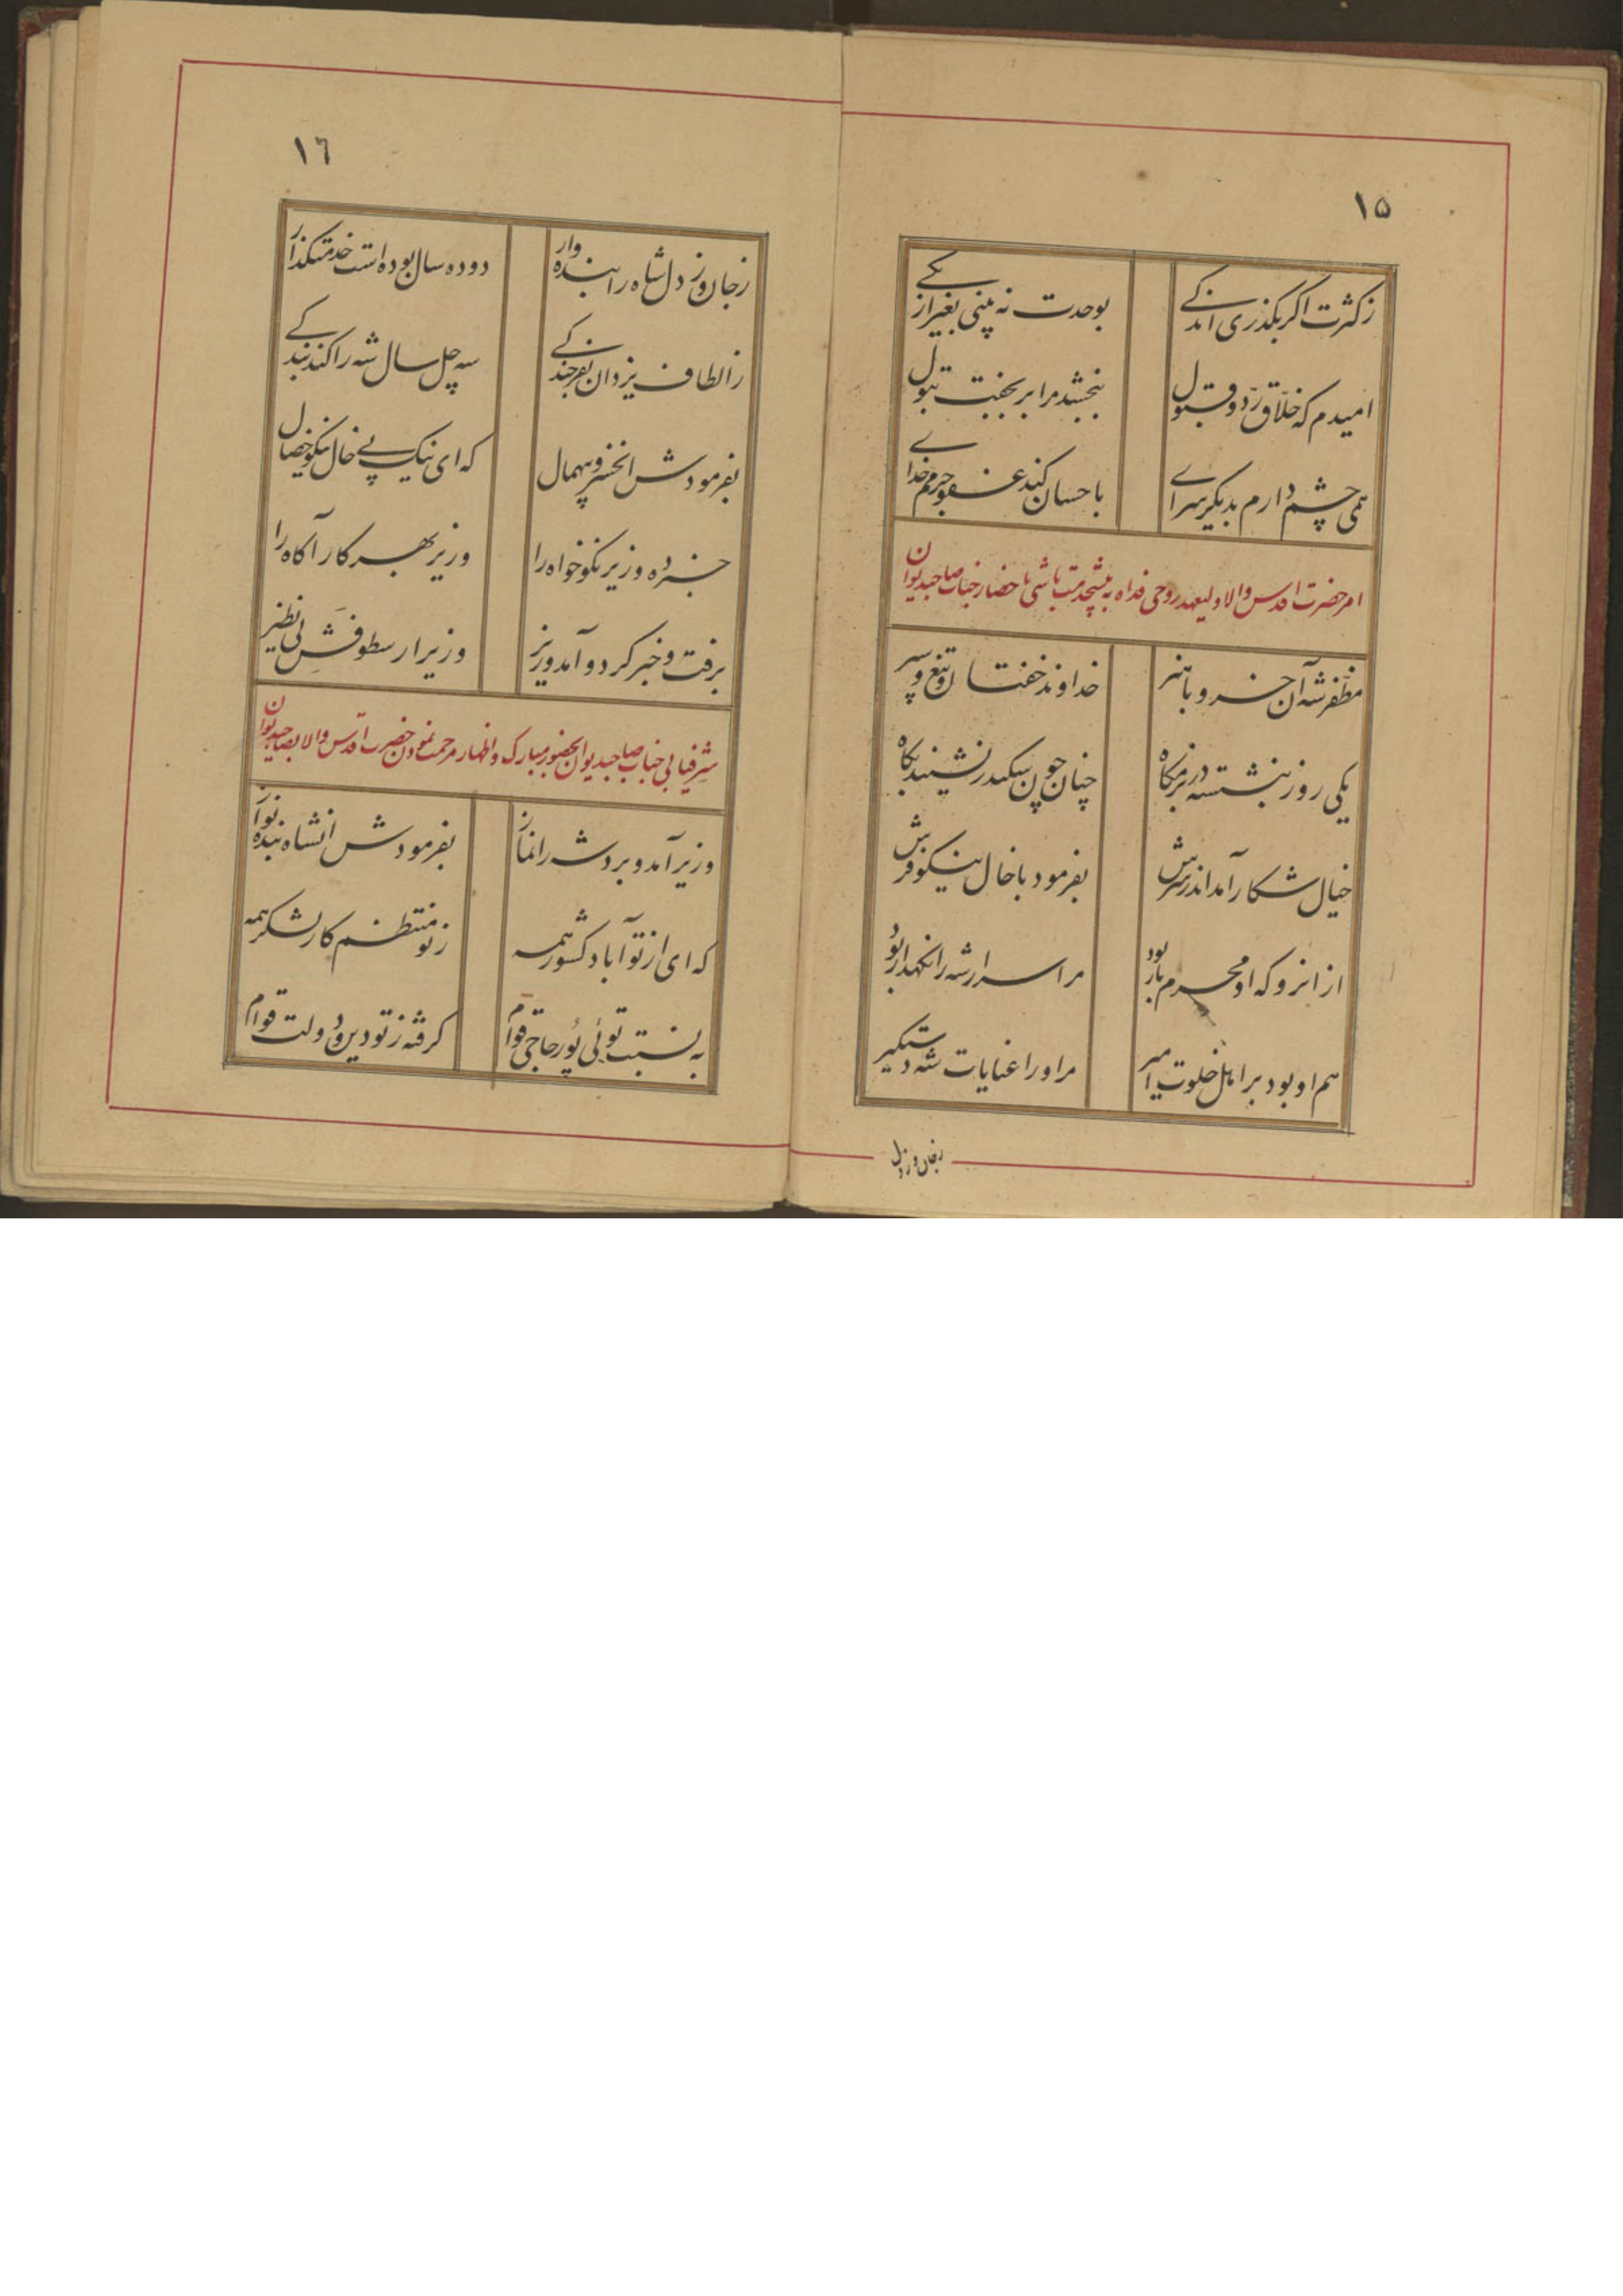 ١۵
زکثرت اگر بگذری اندکے
بوحدت نه بینی بغیر از یکے
امیدم که خلّاق ردّ و قبول
ببخشد مرا بر بحفت بتول
همی چشم دارم بدیگر سراے
باحسان کند عفو جرمم خداے
امر حضرت اقدس والا ولیعهد روحی فداه به پیشخدمت باشی باحضار جناب صاحبدیوان
مظفر شه آن خسرو باهنر
خداوند خفتان و تیغ و سپر
یکی روز بنشسته در بزمگاه
چنان چون سکندر نشیند بگاه
خیال شکار آمد اندر سرش
بفرمود با خال نیکوفرش
از انرو که او محرم بار بود
مر اسرار شه را نگهدار بود
هم او بود بر اهل خلوت امیر
مر او را عنایات شه دستگیر
زجان وز دل
١٦
زجان وز دل شاه را بنده وار
دو ده سال بوده است خدمتگذار
ز الطاف یزدان بفرخندکے
سه چل سال شه را کند بندکے
بفرمودش انخسرو بیهمال
که ای نیک پے خال نیکو خصال
خبر ده وزیر نکوخواه را
وزیر بهر کار آگاه را
برفت و خبر کرد و آمد وزیر
وزیر ارسطوفش بی نظیر
شرفیابی جناب صاحبدیوان بحضور مبارک و اظهار مرحمت نمودن حضرت اقدس والا بصاحبدیوان
وزیر آمد و برد شه را نماز
بفرمودش انشاه بنده نواز
که ای از تو آباد کشور همه
ز تو منتظم کار لشکر همه
به نسبت توئی پُور حاجی قوام
گرفته ز تو دین و دولت قوام